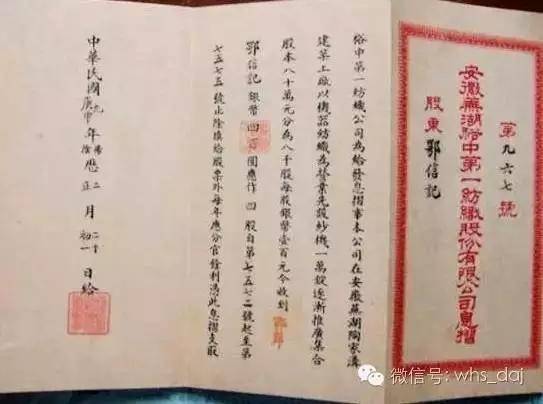 第九六七號
安徽蕪湖裕中第一紡織股份有限公司息摺
股東鄂信記
裕中第一紡織公司為給發息摺事本公司在安徽蕪湖陶家溝
建築工廠以機器紡織為營業先設紗機一萬錠逐漸推廣集合
股本八十萬元分為八千股每股銀幣壹百元今收到
鄂信記 銀幣四百圓應作四股自第七五七二號起至第
七五七五號止除填給股票外每年應分官餘利憑此息摺支取
中華民國九庚申年陽陰歷二正月二十初一日給
微信号: whs_daj